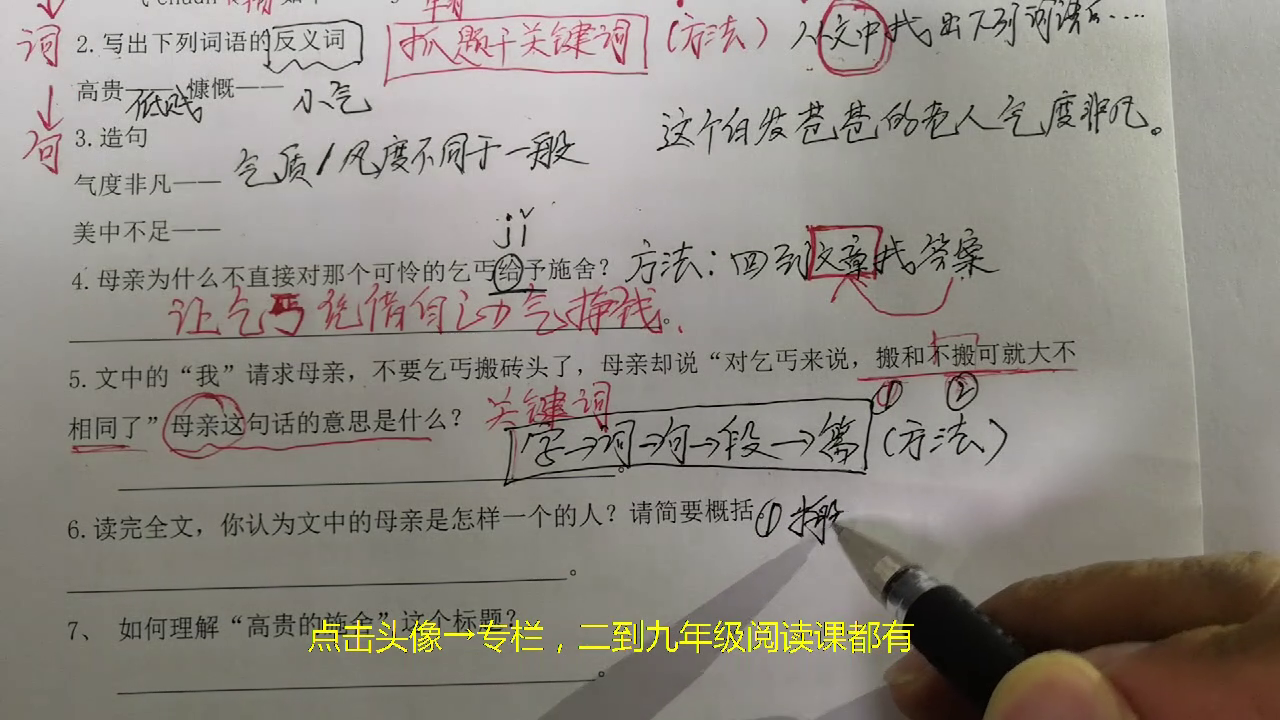 词
2.写出下列词语的反义词 抓题干关键词 (方法) 从文中找出下列词语的....
高贵 低贱 慷慨—— 小气
句
3.造句
这个白发苍苍的老人气度非凡。
气度非凡—— 气质/风度不同于一般
美中不足——
jǐ
4.母亲为什么不直接对那个可怜的乞丐给予施舍? 方法:回到文章找答案
让乞丐凭借自己力气挣钱。
5.文中的“我”请求母亲,不要乞丐搬砖头了,母亲却说“对乞丐来说,搬和不搬可就大不
① ②
相同了”母亲这句话的意思是什么? 关键词
字→词→句→段→篇 (方法)
6.读完全文,你认为文中的母亲是怎样一个的人?请简要概括 ①搬
7、 如何理解“高贵的施舍”这个标题?
点击头像→专栏,二到九年级阅读课都有